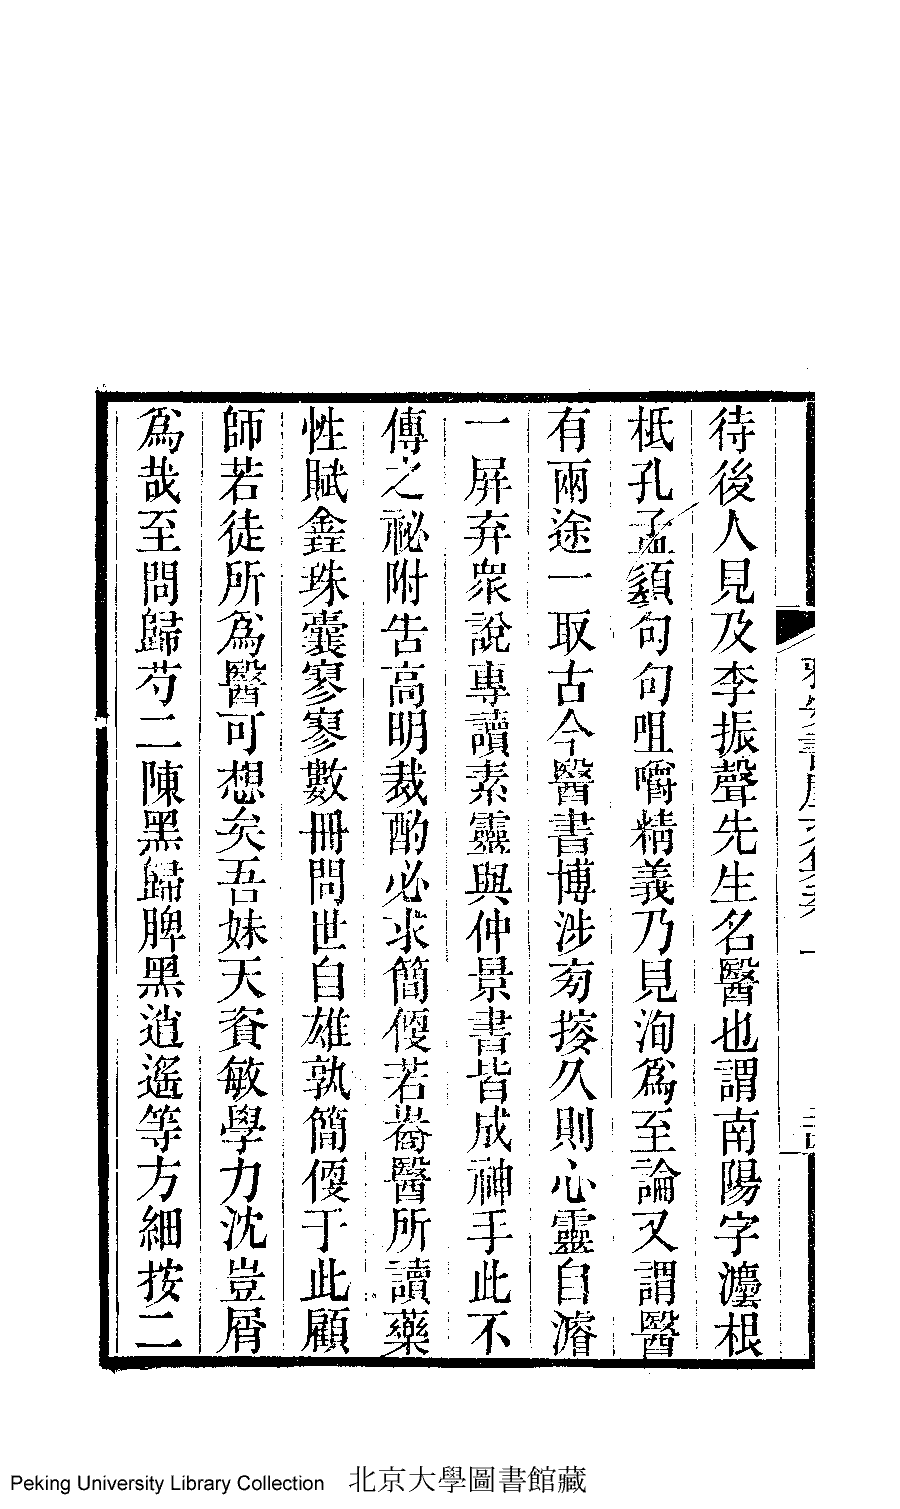 待後人見及李振聲先生名醫也謂南陽字灋根
柢孔孟纇句句咀嚼精義乃見洵為至論又謂醫
有兩途一取古今醫書博涉旁搜久則心靈自濬
一屏弃衆說專讀素靈與仲景書皆成神手此不
傳之祕附告高明裁酌必求簡偄若粊醫所讀藥
性賦鑫珠囊寥寥數冊問世自雄孰簡偄于此顧
師若徒所為醫可想矣吾妹天資敏學力沈豈屑
為哉至問歸芍二陳黑歸脾黑逍遙等方細按二
書屋文集卷一
Peking University Library Collection 北京大學圖書館藏